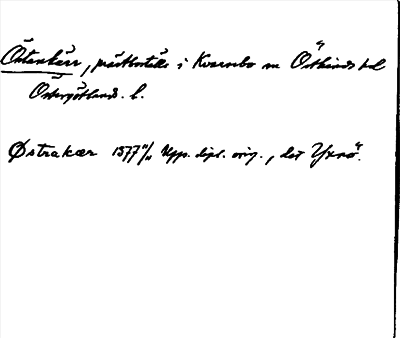 Österkärr, prästboställe i Kvarsebo sn Östkinds hd
Östergötlands l.
Østrakær 1377 11/11 Upp. dipl. orig., dat Yxnö.